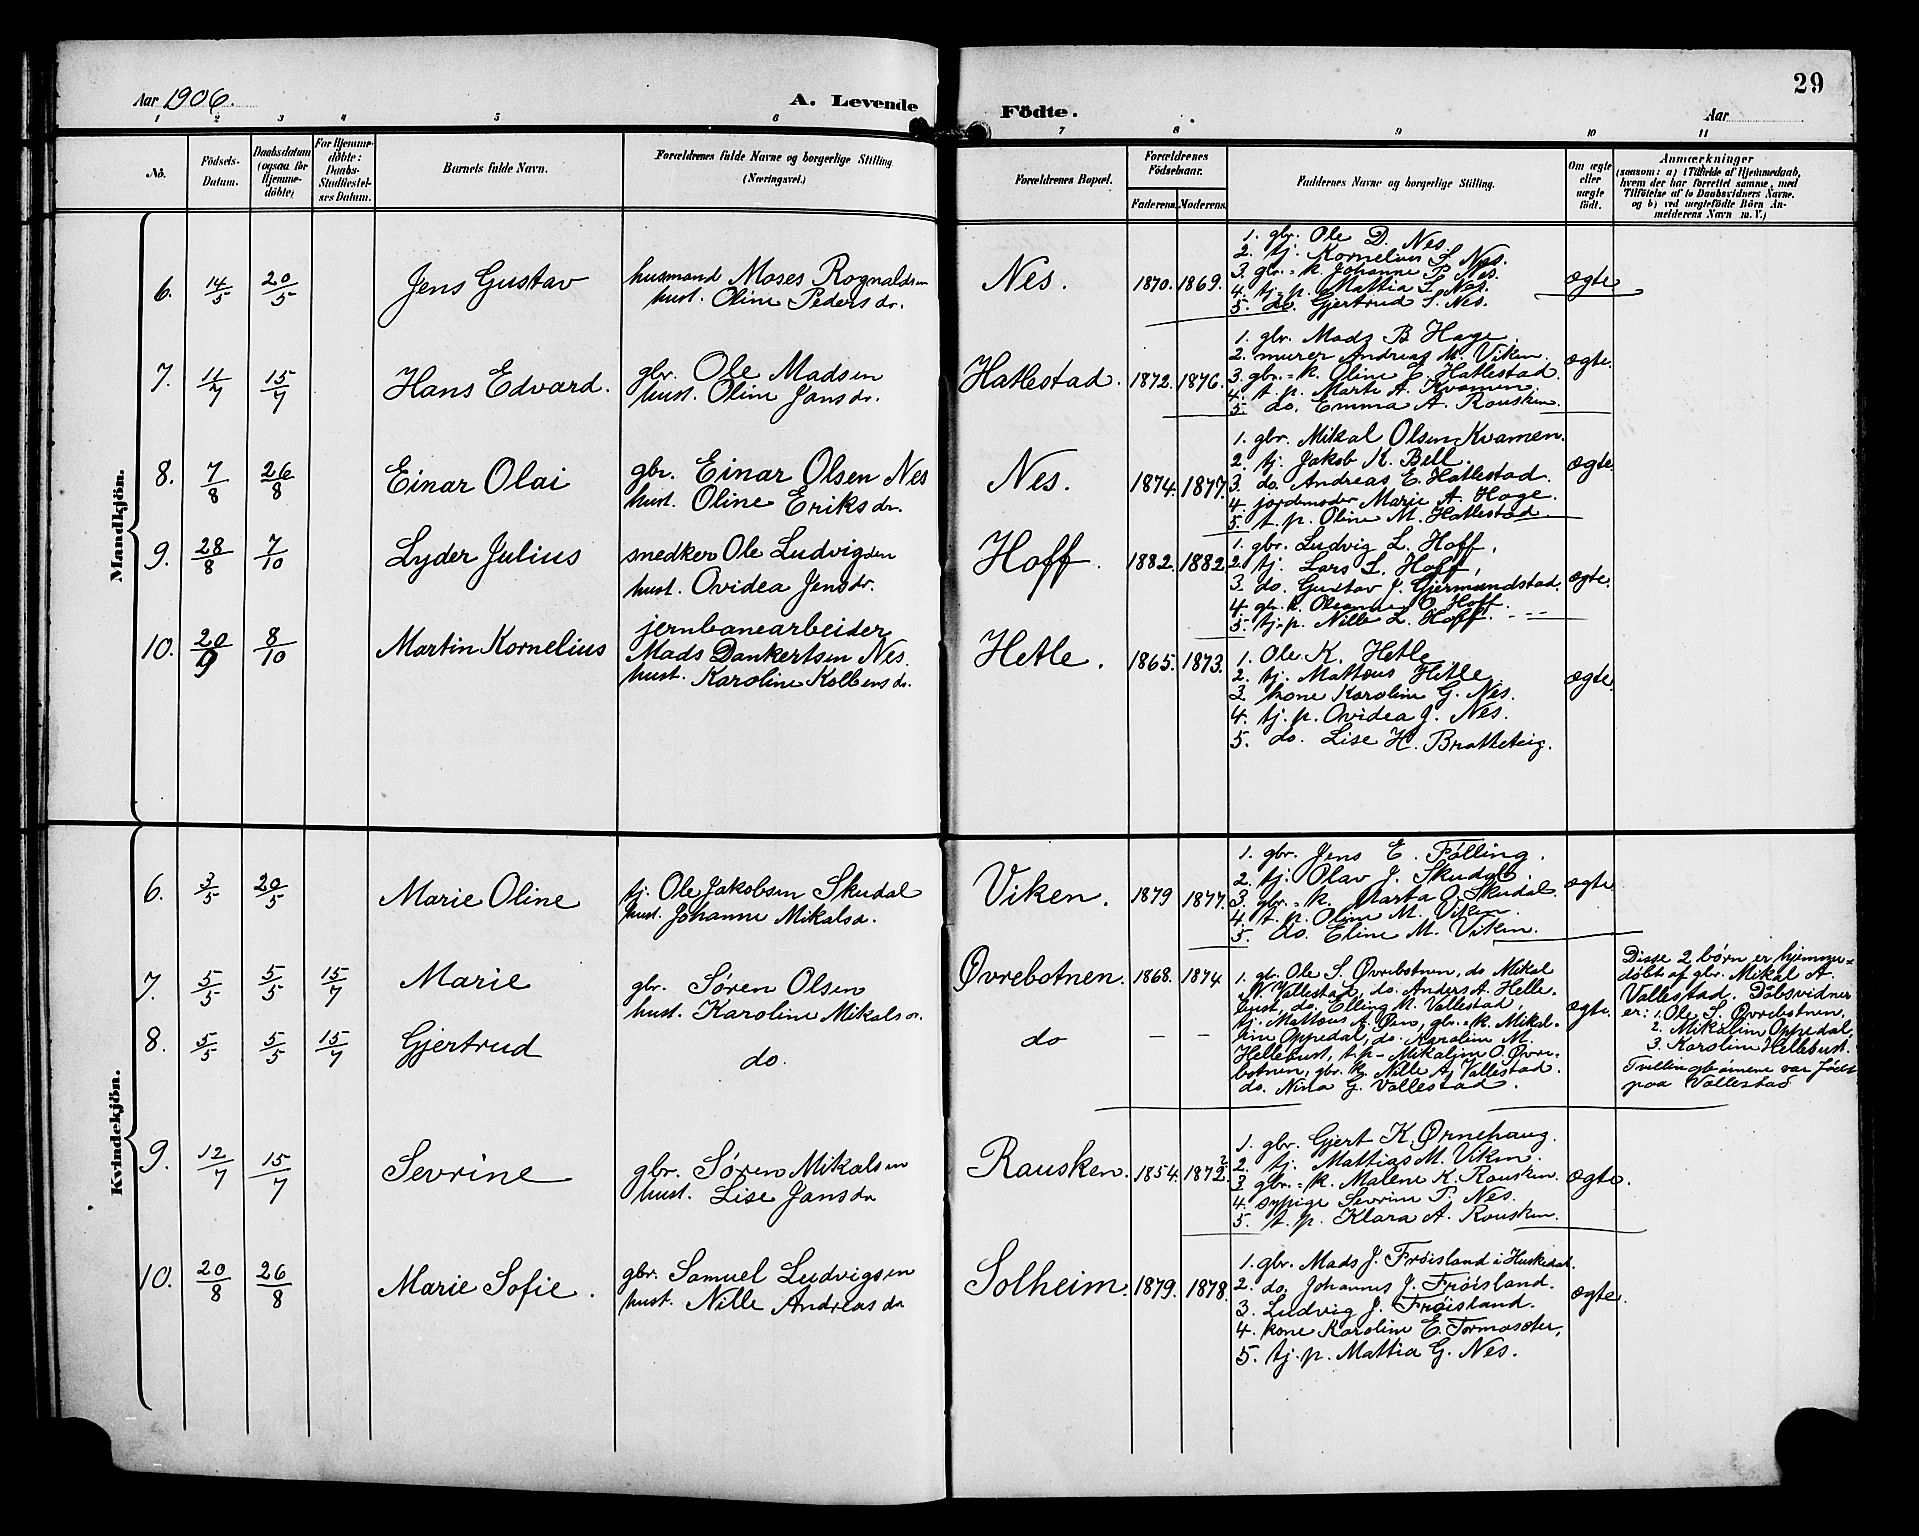 Aar 1906.
A. Levende
Födte.
Aar
29
1 2 3 4 5 6 7 8 9 10 11
No.
Födsels-
Datum.
Daabsdatum
(ogsaa for
Hjemme-
döbte)
For Hjemme-
döbte:
Daabs-
Stadfæstel-
ses Datum.
Barnets fulde Navn.
Forældrenes fulde Navne og borgerlige Stilling
(Næringsvei.)
Forældrenes Bopæl.
Forældrenes
Födselsaar.
Faderens.
Moderens.
Faddernes Navne og borgerlige Stilling.
Om ægte
eller
uægte
födt.
Anmærkninger
(saasom: a) i Tilfælde af Hjemmedaab,
hvem der har forrettet samme, med
Tilföielse af to Daabsvidners Navne.
og b) ved uægtefödte Börn An-
melderens Navn m. V.)
Mandkjön.
6. 14/5 20/5 Jens Gustav
husmand Moses Rognaldsen
hust. Oline Pedersdr.
Nes. 1870. 1869.
1. gbr. Ole D. Nes.
2. tj. Kornelius S. Nes.
3. gbr.=k. Johanne P. Nes.
4. tj.=p. Mattia S. Nes.
5. do. Gjertrud S. Nes.
ægte
7. 11/7 15/7 Hans Edvard.
gbr. Ole Madsen
hust. Oline Jansdr.
Hatlestad. 1872. 1876.
1. gbr. Mads B Hage.
2. murer Andreas M. Viken.
3. gbr.=k. Oline E. Hatlestad.
4. t. p. Marte A. Kvamen.
5. do. Emma A. Rausken.
ægte.
8. 7/8 26/8 Einar Olai
gbr. Einar Olsen Nes
hust. Oline Eriksdr.
Nes. 1874. 1877.
1. gbr. Mikal Olsen Kvamen.
2. tj. Jakob K. Bell.
3. do. Andreas E. Hatlestad.
4. jordmoder Marie A. Hage.
5. t. p. Oline M. Hatlestad.
ægte.
9. 28/8 7/10 Lyder Julius
snedker Ole Ludvigsen
hust. Ovidea Jensdr.
Hoff. 1882. 1882
1. gbr. Ludvig L. Hoff.
2. tj. Lars L. Hoff.
3. do. Gustav J. Gjermundstad.
4. gbr. k. Oleanne O. Hoff.
5. tj.p. Nille L. Hoff.
ægte.
10. 20/9 8/10 Martin Kornelius
jernbanearbeider
Mads Dankertsen Nes.
hust. Karoline Kolbensdr.
Hetle. 1865. 1873.
1. Ole K. Hetle
2. tj. Mattæus Hetle.
3. kone Karoline G. Nes.
4. tj. p. Ovidea J. Nes.
5. do. Lise H. Bratteteig.
ægte.
Kvindekjön.
6. 3/5 20/5 Marie Oline
tj. Ole Jakobsen Skudal
hust. Johanne Mikalsd.
Viken. 1879 1877.
1. gbr. Jens E. Følling.
2. tj. Olav J. Skudal.
3. gbr.=k. Marta O. Skudal
4. t. p. Oline M. Viken.
5. do. Eline M. Viken.
ægte
7. 5/5 5/5 15/7 Marie
gbr. Søren Olsen
hust. Karoline Mikalsd.
Øvrebotnen. 1868. 1874
8. 5/5 5/5 15/7 Gjertrud
do.
do – –
1. gbr. Ole S. Øvrebotnen, do Mikal
N. Vallestad, do. Anders A. Helle-
bust, do Elling M. Vallestad
tj. Mattæus A. Øen, gbr.=k. Mikal-
ine Oppedal, do. Karoline M.
Hellebust, t. p– Mikaline O. Øvre-
botnen, gbr. k. Nille A. Vallestad.
do. Nina G. Vallestad.
ægte.
Disse 2 børn er hjemme-
døbt af gbr. Mikal A.
Vallestad. Dåbsvidner
er: 1. Ole S. Øvrebotnen,
2. Mikaline Oppedal,
3. Karoline Hellebust.
Tvillingbørnene var født
paa Vallestad
9. 12/7 15/7 Sevrine
gbr. Søren Mikalsen
hust. Lise Jansdr
Rausken. 1854. 1872.
1. gbr. Gjert K. Ørnehaug.
2. tj. Mattias M. Viken.
3. gbr.=k. Malene K. Rausken.
4. sypige Sevrine P. Nes.
5. t. p. Klara A. Rausken.
ægte.
10. 20/8 26/8 Marie Sofie.
gbr. Samuel Ludvigsen
hust. Nille Andreasdr
Solheim. 1879. 1878.
1. gbr. Mads J. Frøisland i Huskedal.
2. do. Johannes J. Frøisland.
3. Ludvig J. Frøisland.
4. kone Karoline E. Tormasæter,
5. tj. p. Mattia G. Nes.
ægte.